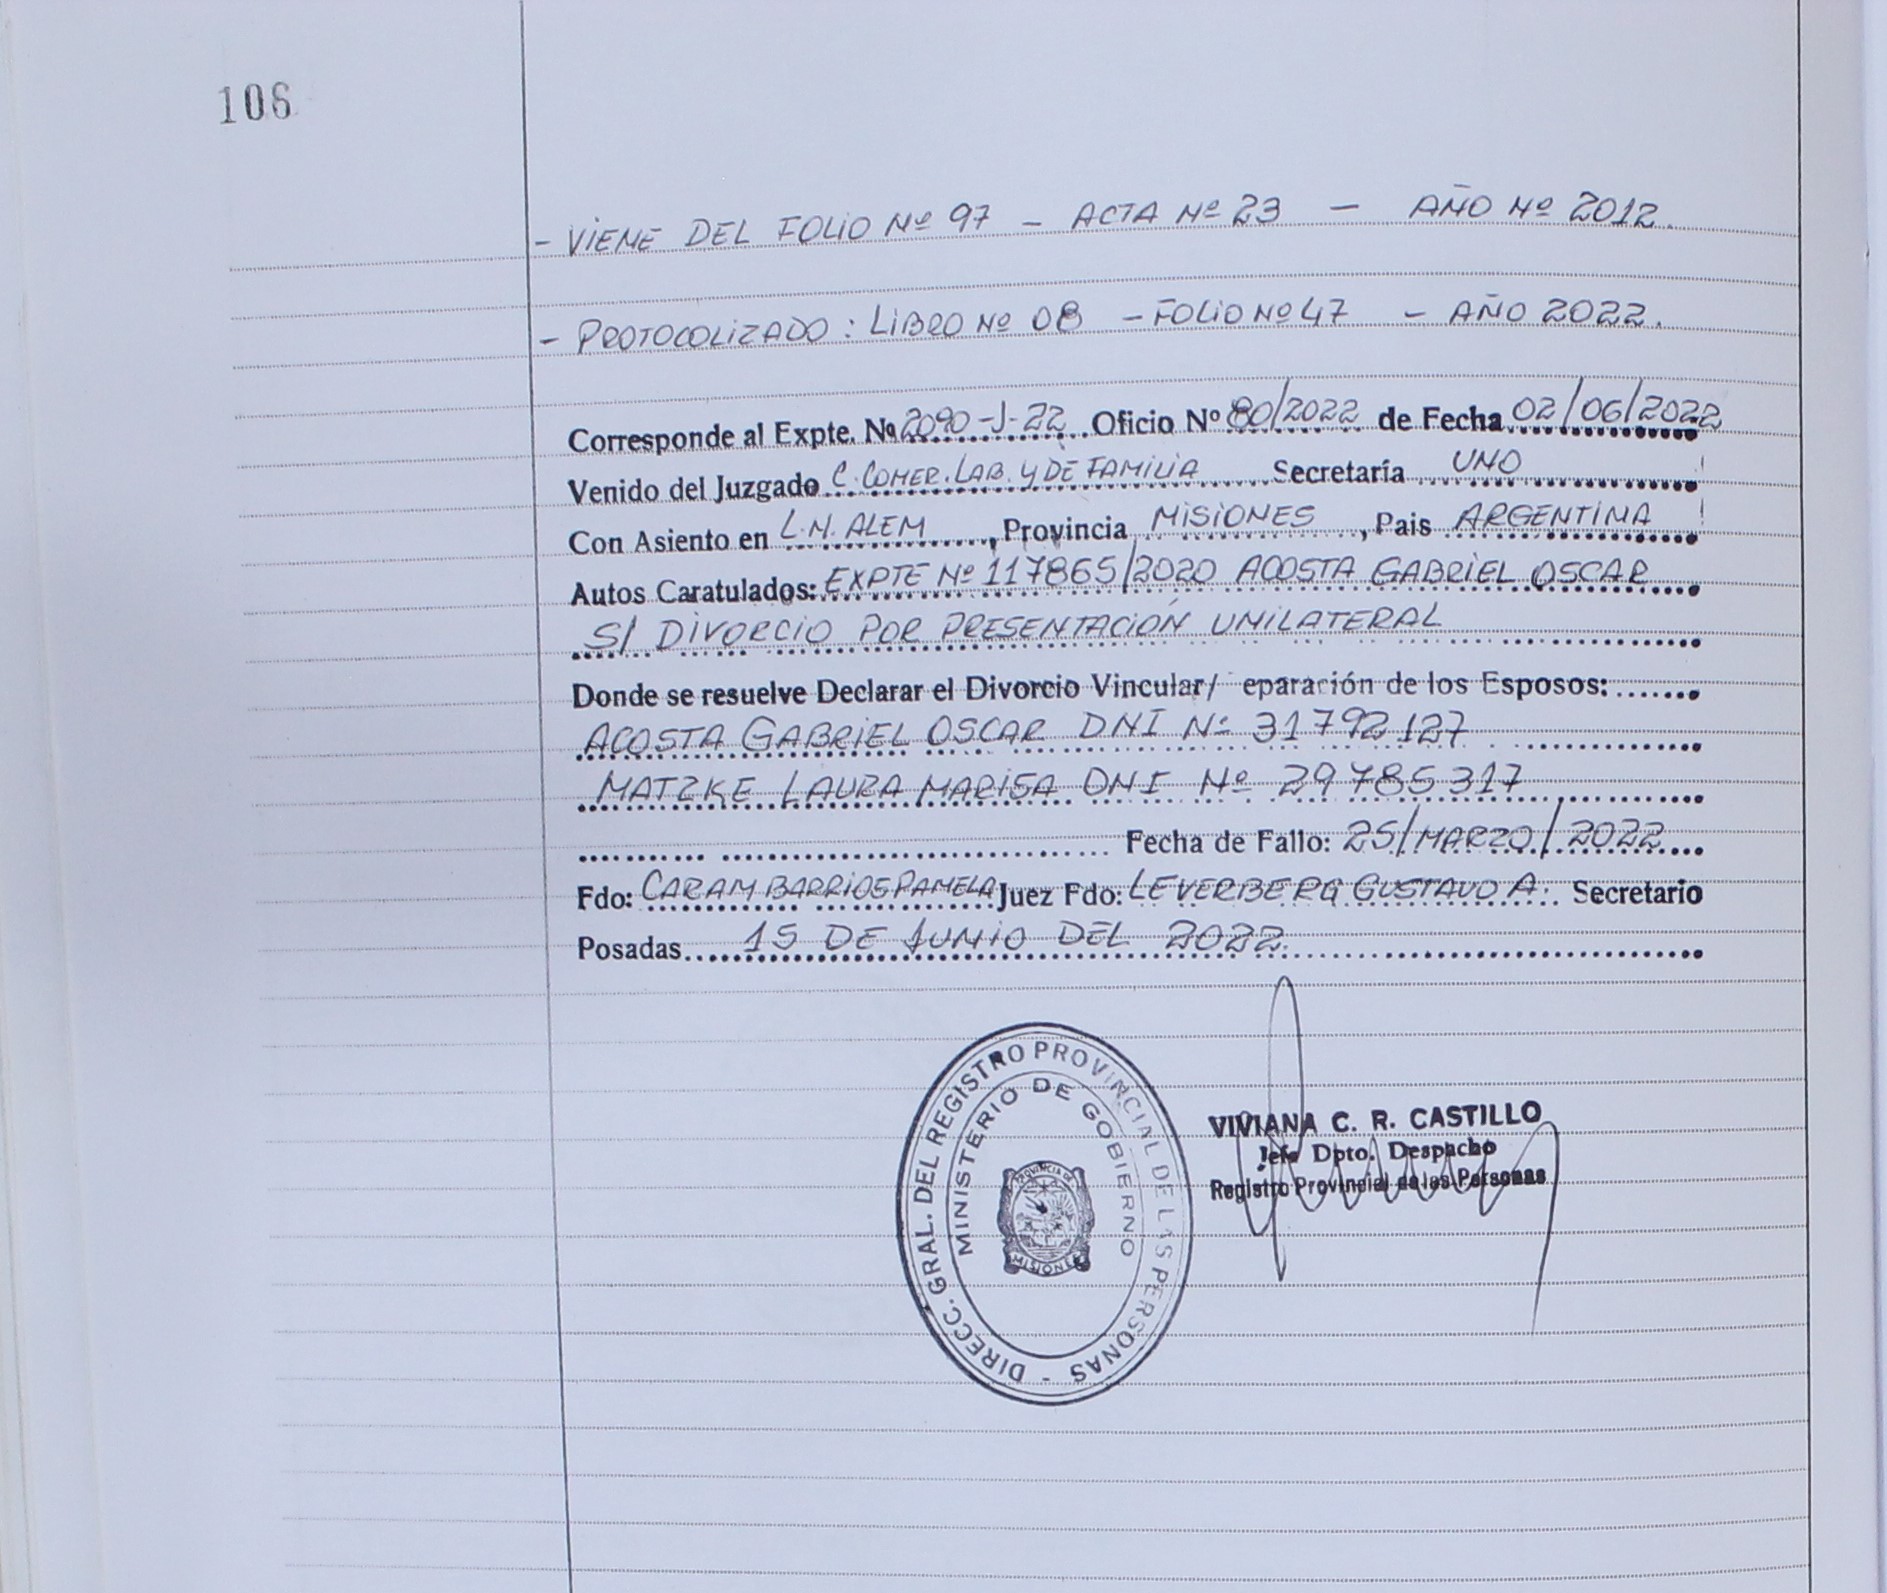 106
- VIENE DEL FOLIO Nº 97 - ACTA Nº 23 - AÑO Nº 2012.
- PROTOCOLIZADO: LIBRO Nº 08 - FOLIO Nº 47 - AÑO 2022.
Corresponde al Expte. Nº 2090-J-22 Oficio Nº 80/2022 de Fecha 02/06/2022
Venido del Juzgado C. COMER. LAB. Y DE FAMILIA Secretaría UNO
Con Asiento en L.N. ALEM, Provincia MISIONES, Pais ARGENTINA
Autos Caratulados: EXPTE Nº 117865/2020 ACOSTA GABRIEL OSCAR
S/ DIVORCIO POR PRESENTACIÓN UNILATERAL
Donde se resuelve Declarar el Divorcio Vincular/ eparación de los Esposos:
ACOSTA GABRIEL OSCAR DNI Nº 31792127
MATZKE LAURA MARISA DNI Nº 29785317
Fecha de Fallo: 25/MARZO/2022
Fdo: CARAM BARRIOS PAMELA Juez Fdo: LEVERBERG GUSTAVO A. Secretario
Posadas 15 DE JUNIO DEL 2022.
DIRECC. GRAL. DEL REGISTRO PROVINCIAL DE LAS PERSONAS -
MINISTERIO DE GOBIERNO
PROVINCIA DE
MISIONES
VIVIANA C. R. CASTILLO
Jefe Dpto. Despacho
Registro Provincial de las Personas